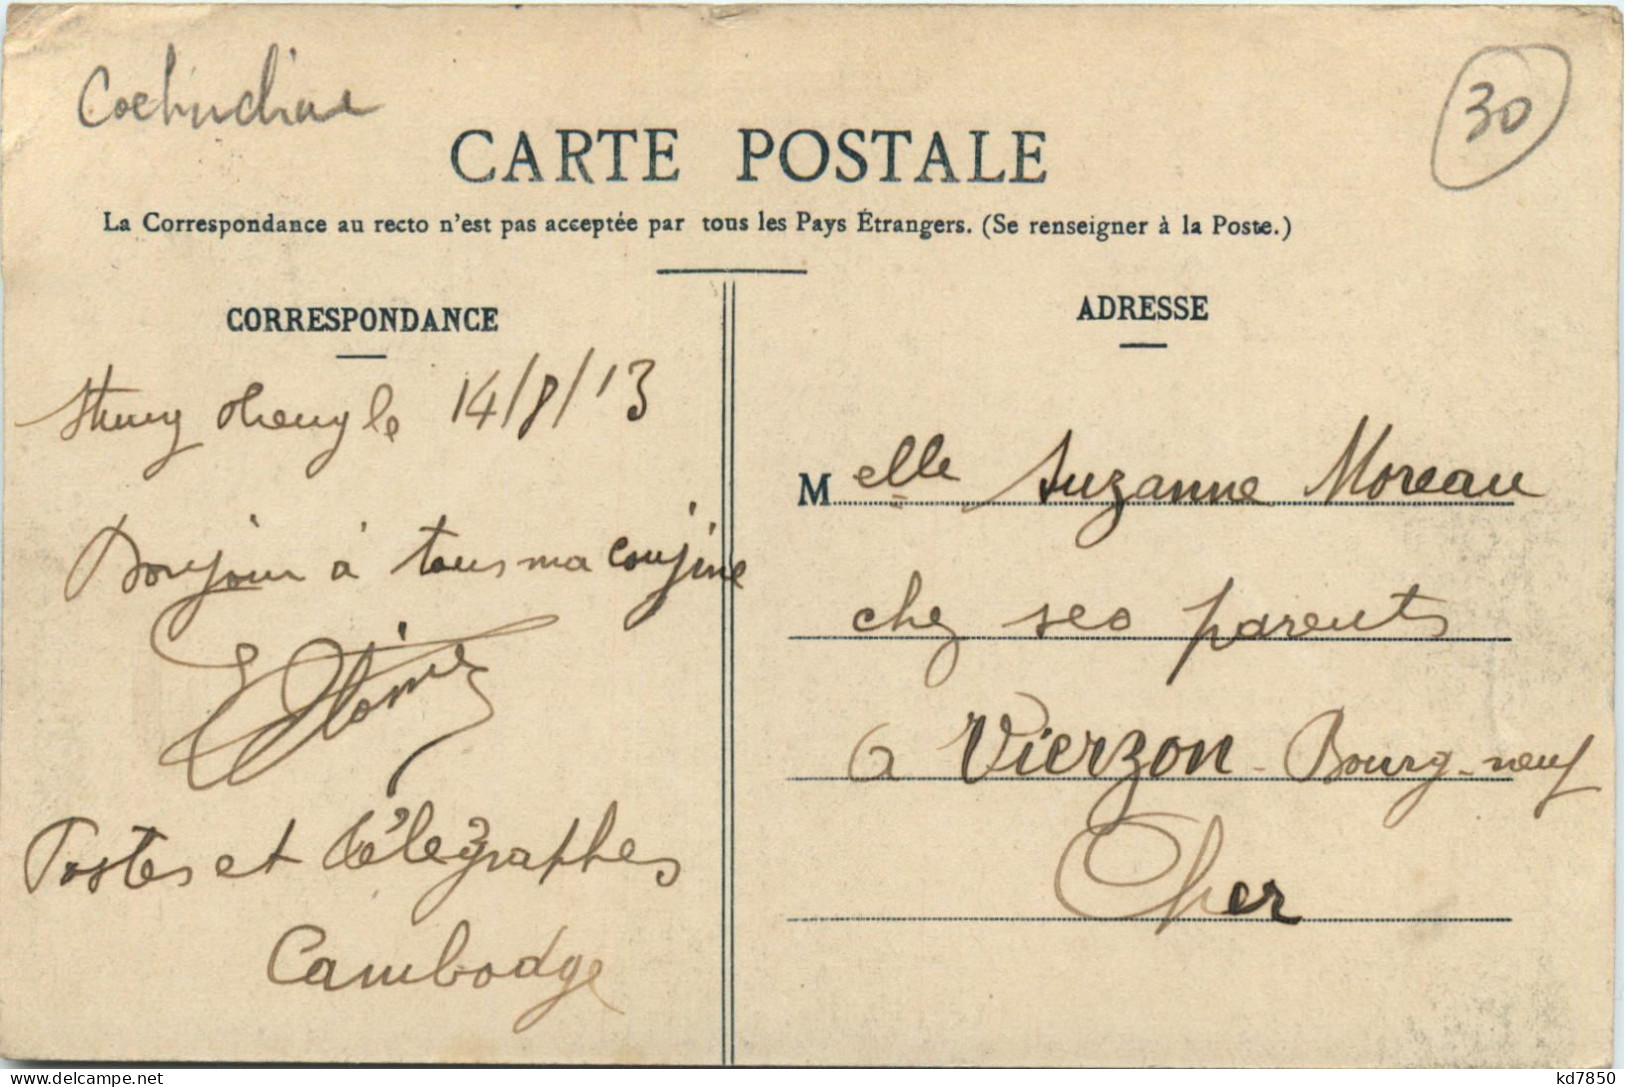 Cochinchine
30
CARTE POSTALE
La Correspondance au recto n'est pas acceptée par tous les Pays Étrangers. (Se renseigner à la Poste.)
CORRESPONDANCE
Stung Theng le 14/8/13
Bonjour à tous ma cousine
Postes et télégraphes
Cambodge
ADRESSE
Melle Suzanne Moreau
chez ses parents
à Vierzon - Bourg-neuf
Cher
kd7850